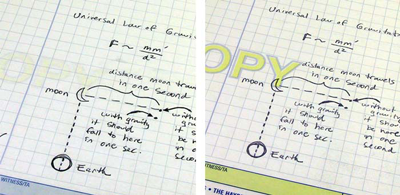 Universal Law of Gravi
F ~ mm'
d²
distance moon trav
in one second
moon
with gravity
it should
fall to here
in one sec.
Earth
WITNESS/TA
Universal Law of Gravitat
OPY
F ~ mm'
d²
distance moon travels
in one second
moon
with gravity
it should
fall to here
in one sec.
without
gravity
it should
be here
in one
second
Earth
WITNESS/TA
• THE HAY